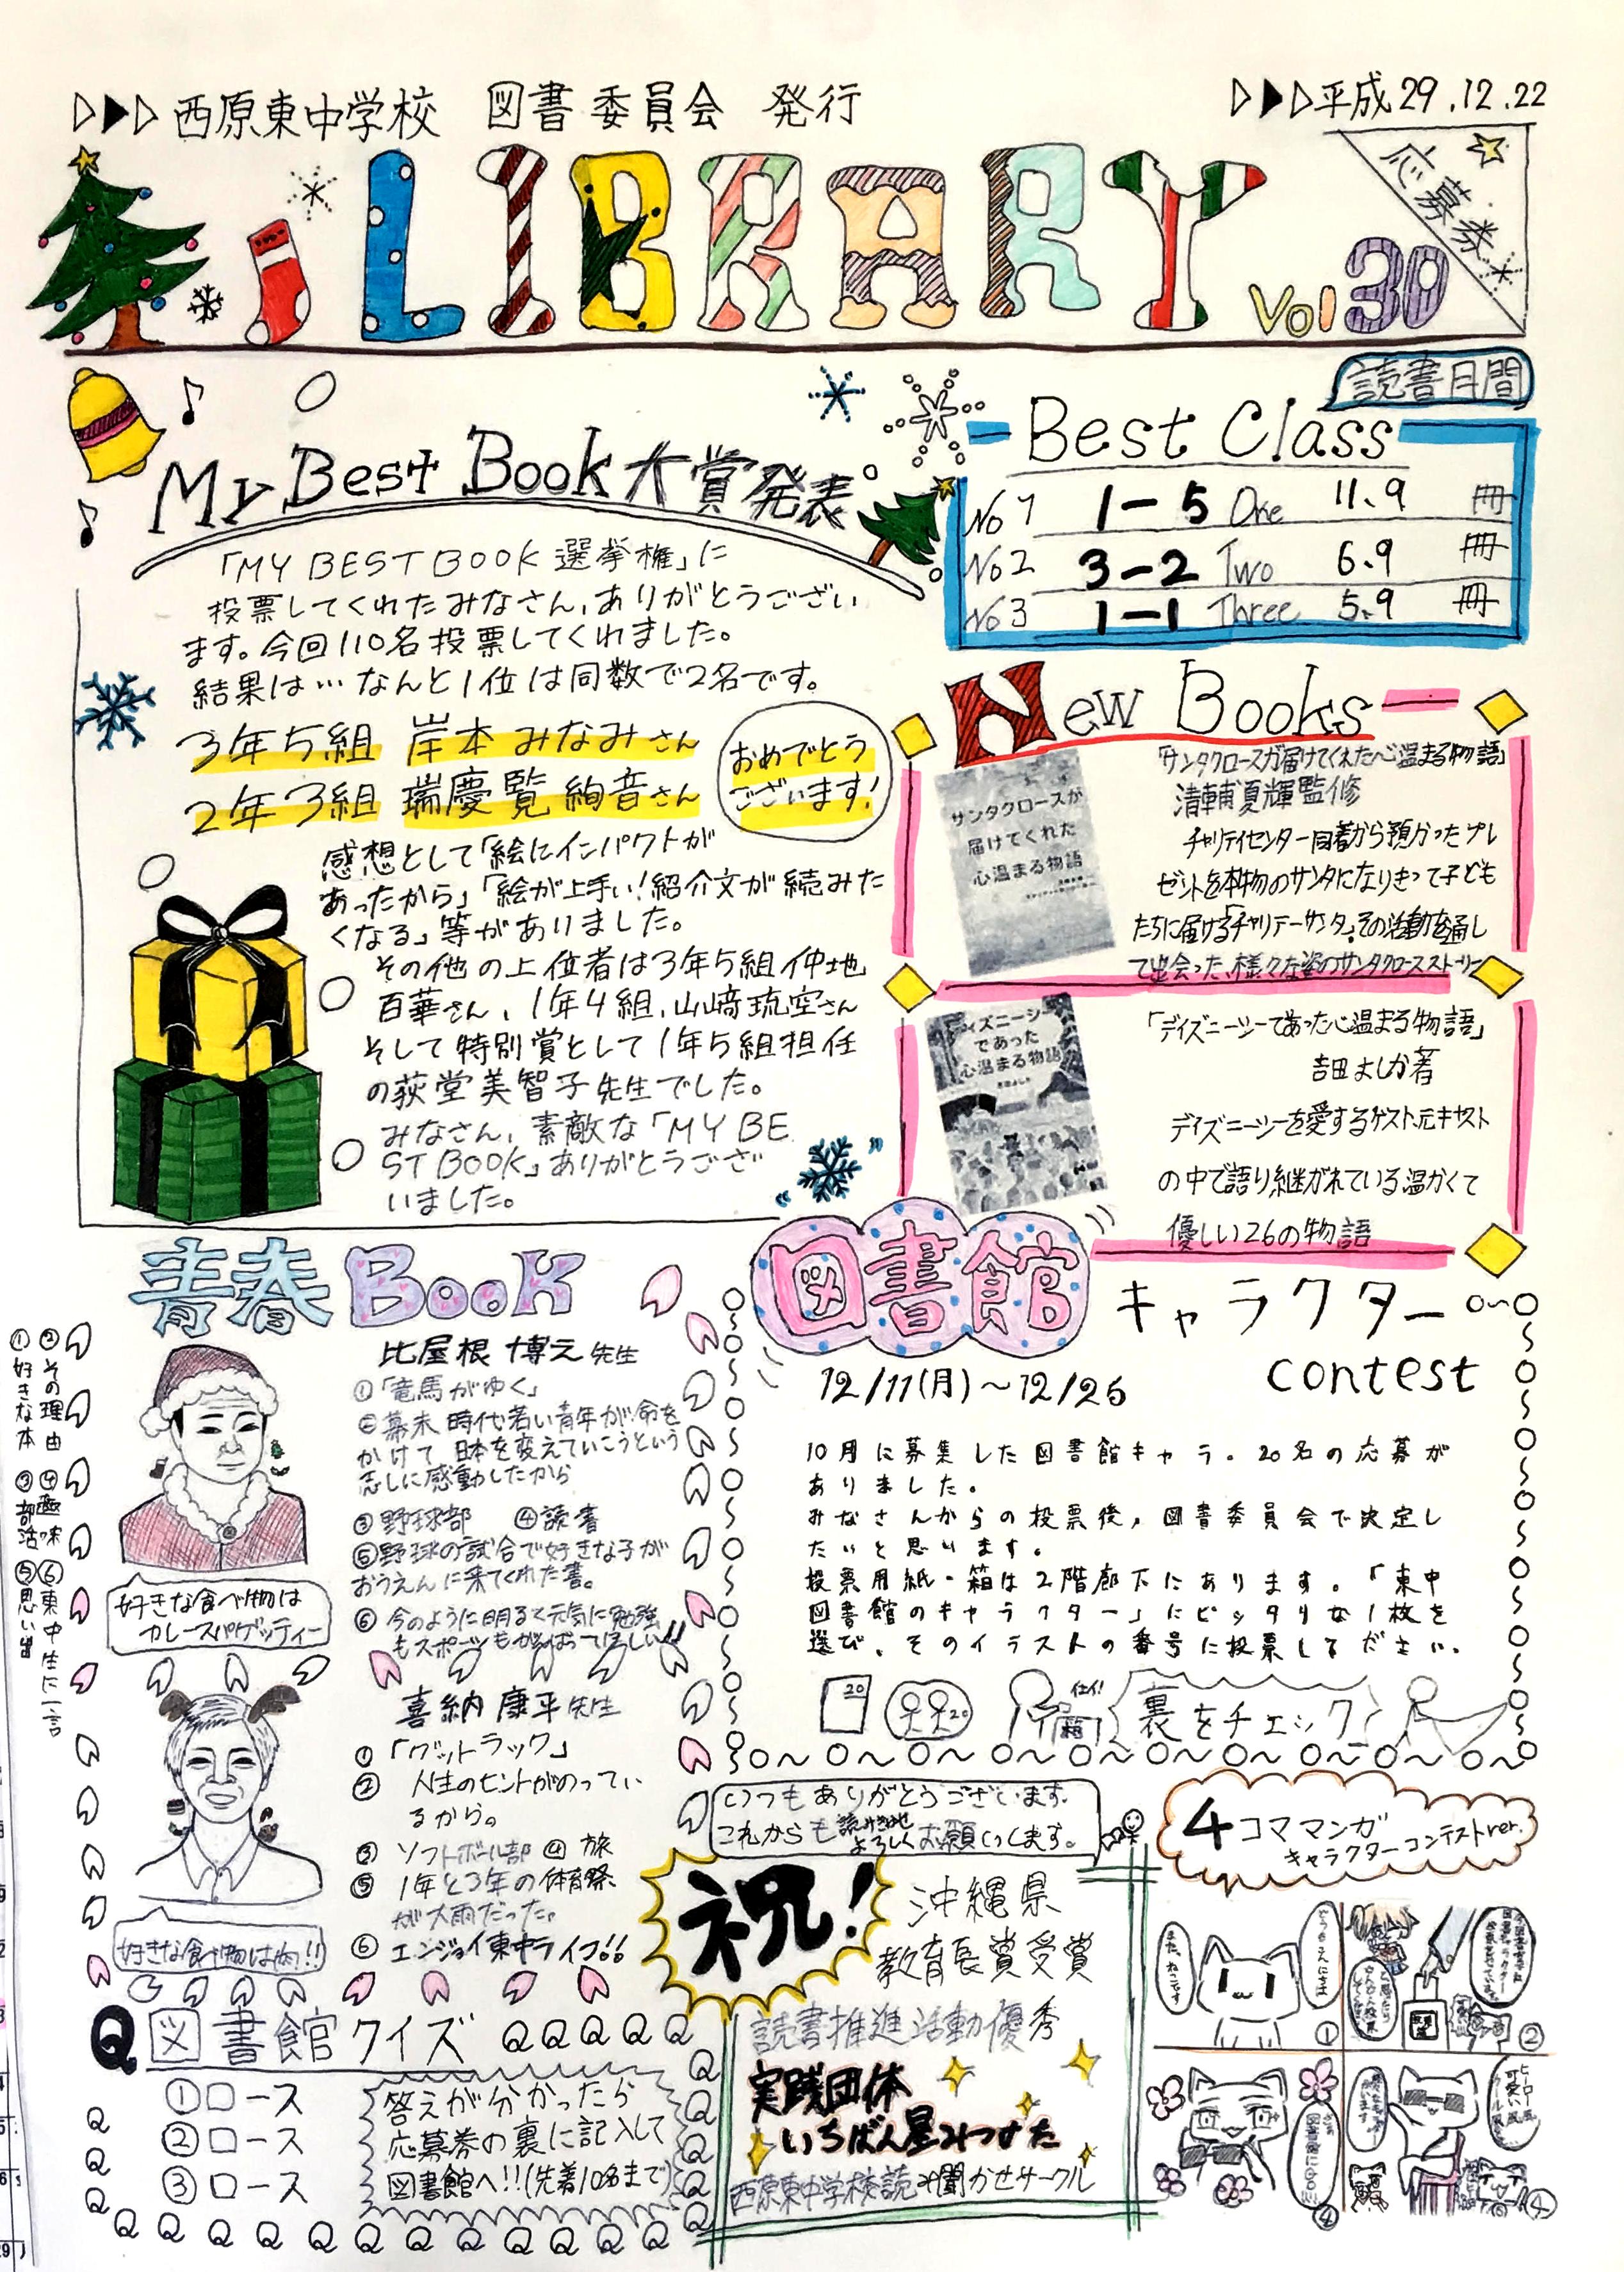 ▷▶▷西原東中学校 図書委員会 発行
▷▶▷平成29.12.22
LIBRARY Vol 30
応募券
My Best Book 大賞発表
「MY BEST BOOK 選挙権」に
投票してくれたみなさん、ありがとうござい
ます。今回110名投票してくれました。
結果は…なんと1位は同数で2名です。
3年5組 岸本 みなみさん
2年3組 瑞慶覧 絢音さん
おめでとう
ございます!
感想として「絵にインパクトが
あったから」「絵が上手い!紹介文が続みた
くなる」等がありました。
その他の上位者は3年5組仲地
百華さん、1年4組、山﨑琉空さん
そして特別賞として1年5組担任
の荻堂美智子先生でした。
みなさん、素敵な「MY BE
ST BOOK」ありがとうござ
いました。
読書月間
Best Class
No 1 1-5 One 11.9 冊
No 2 3-2 Two 6.9 冊
No 3 1-1 Three 5.9 冊
New Books
サンタクロースが
届けてくれた
心温まる物語
「サンタクロースが届けてくれた心温まる物語」
清輔夏輝監修
チャリティセンター同着から預かったプレ
ゼントを本物のサンタになりきって子ども
たちに届ける「チャリティーサンタ」その活動を通し
て出会った、様々な姿のサンタクロースストーリー
ディズニーシー
であった
心温まる物語
「ディズニーシーであった心温まる物語」
吉田よしか著
ディズニーシーを愛するゲスト、元キャスト
の中で語り継がれている温かくて
優しい26の物語
青春Book
①好きな本
②その理由
③部活
④趣味
⑤思い出
⑥東中生に一言
比屋根 博之先生
①「竜馬がゆく」
②幕末時代若い青年が命を
かけて 日本を変えていこうという
志しに感動したから
③野球部 ④読書
⑤野球の試合で好きな子が
おうえんに来てくれた事。
⑥今のように明るく元気に勉強
もスポーツもがんばってほしい!!
好きな食べ物は
カレースパゲッティー
喜納 康平先生
①「グットラック」
② 人生のヒントがのってい
るから。
③ ソフトボール部 ④ 旅
⑤ 1年と3年の体育祭
が大雨だった。
⑥ エンジョイ東中ライフ!!
好きな食べ物は肉!!
図書館
キャラクター
contest
12/11(月)～12/25
10月に募集した図書館キャラ。20名の応募が
ありました。
みなさんからの投票後,図書委員会で決定し
たいと思います。
投票用紙・箱は2階廊下にあります。「東中
図書館のキャラクター」にピッタリな1枚を
選び、そのイラストの番号に投票してください。
裏をチェック
いつもありがとうございます。
これからも読み聞かせ
よろしくお願いします。
祝!
沖縄県
教育長賞受賞
読書推進活動優秀
実践団体
いちばん星みつけた
西原東中学校読み聞かせサークル
4コママンガ
キャラクターコンテストver.
①
②
④
Q 図書館クイズ Q Q Q Q Q
①ロース
②ロース
③ロース
答えが分かったら
応募券の裏に記入して
図書館へ!!(先着10名まで)